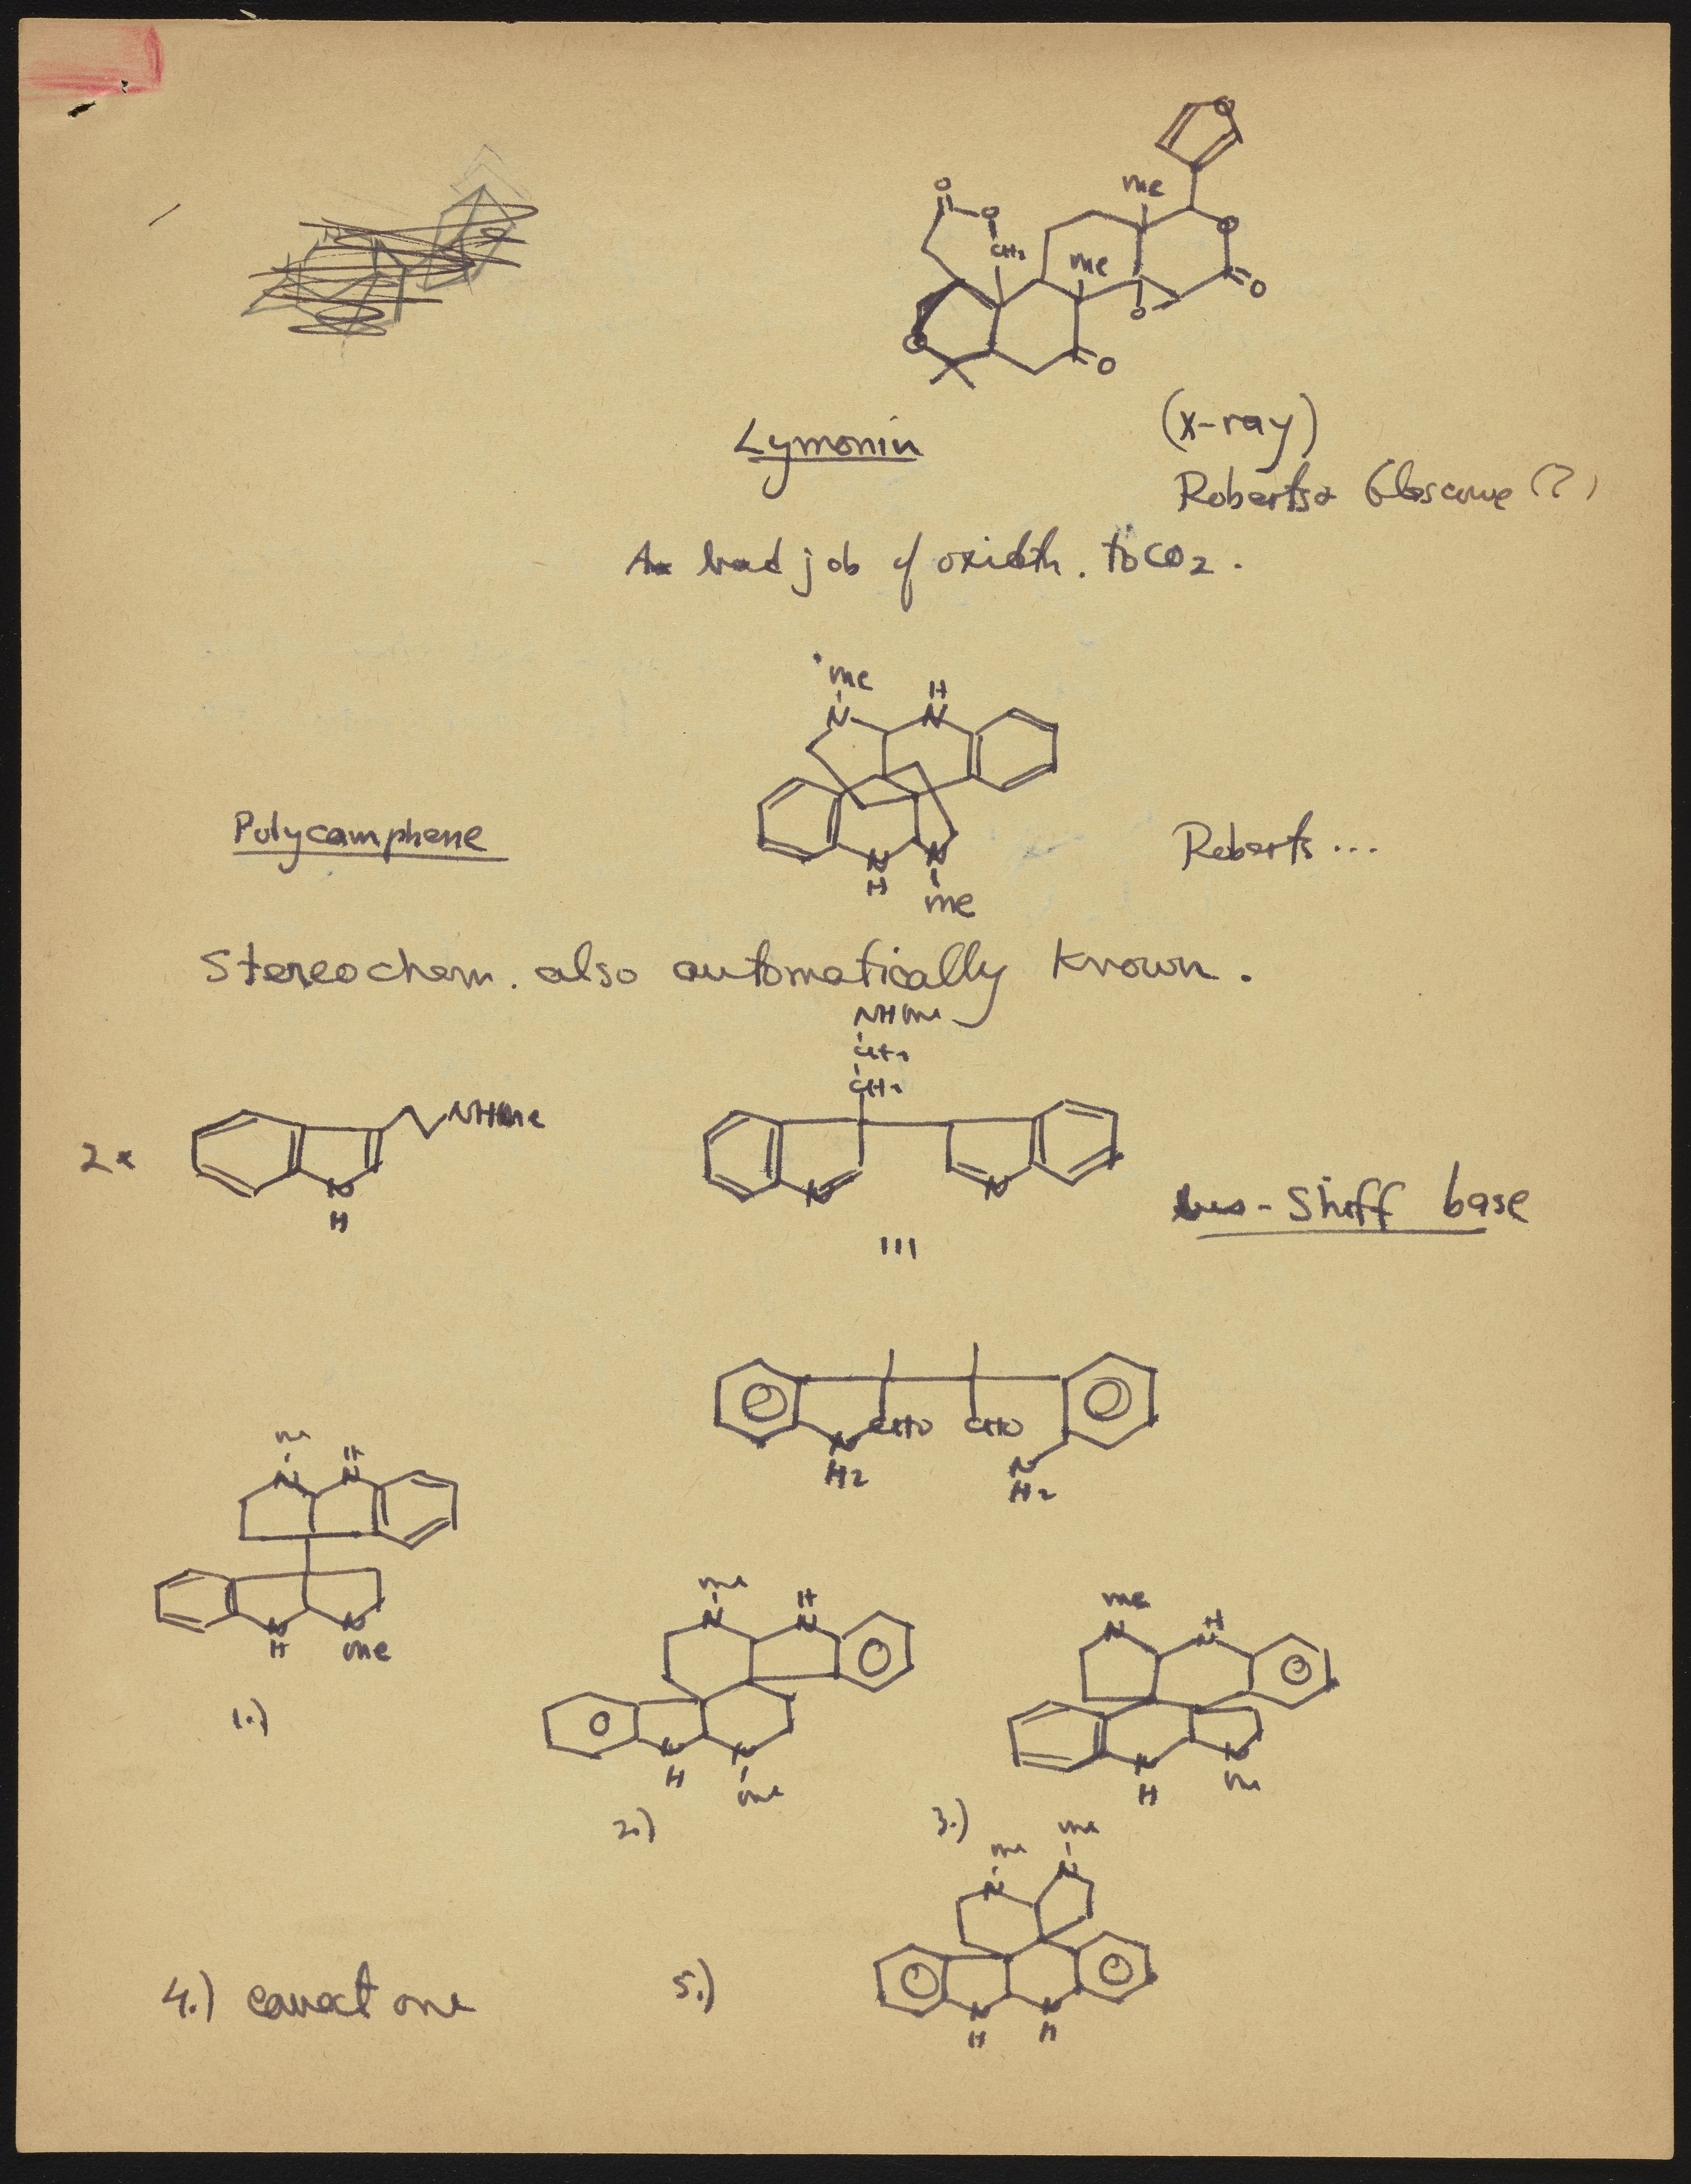 O
me
O
O
O
CH2
me
O
O
O
O
Lymonin
(x-ray)
Roberts
(?)
A bad job of oxidtn. to CO2.
me
H
N
N
Polycamphene
Roberts ...
N
N
H
me
Stereochem. also automatically known.
NHMe
CH2
CH2
NHMe
2x
N
H
N
N
bis-Shiff base
III
CHO
CHO
N
H2
N
H2
me
H
N
N
N
N
H
me
1.)
me
H
N
N
N
N
H
me
2.)
me
H
N
N
N
N
H
me
3.)
me
me
N
N
4.) correct one
5.)
N
N
H
H